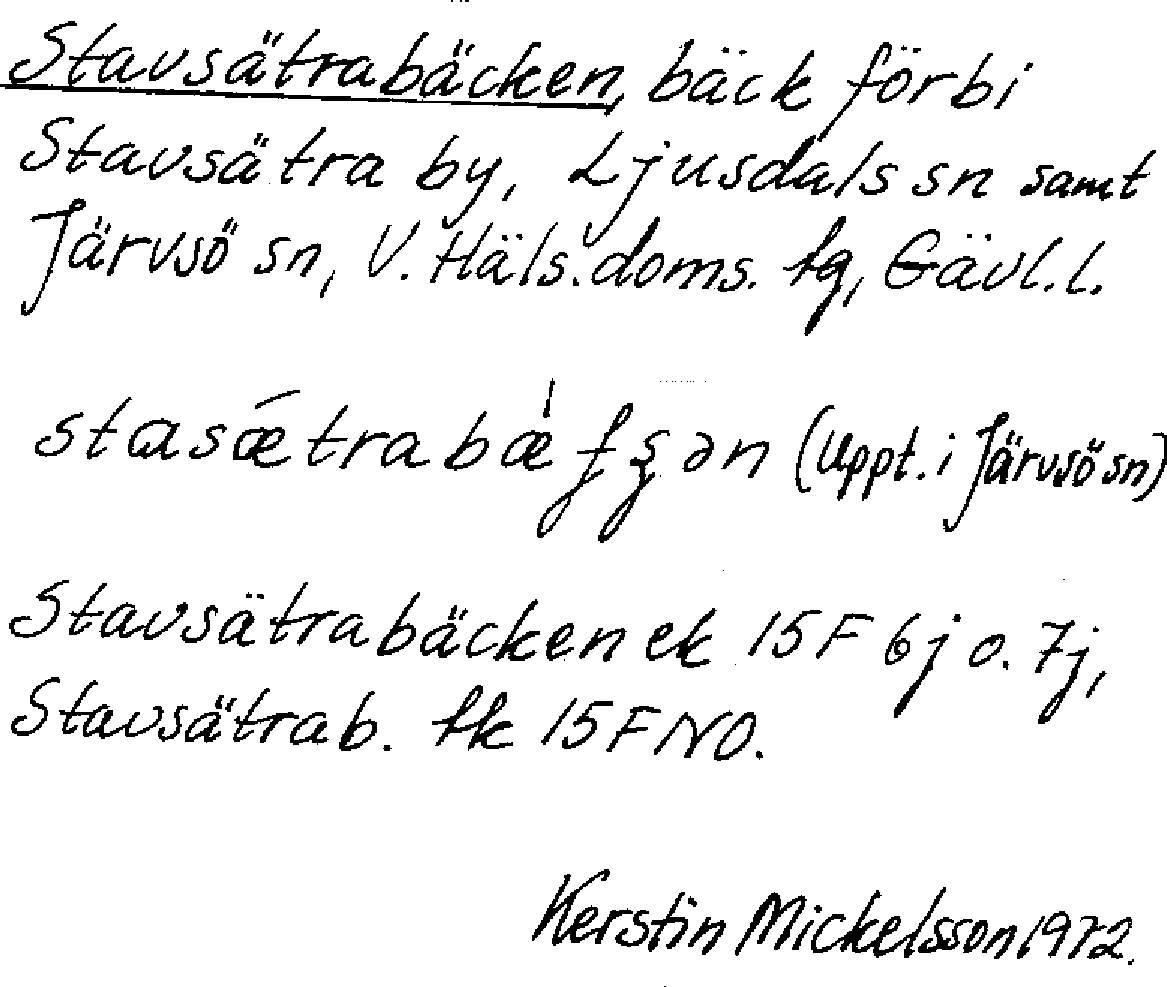 Stavsätrabäcken, bäck förbi
Stavsätra by, Ljusdals sn samt
Järvsö sn, V. Häls. doms. tg, Gävl. l.
(Uppt. i Järvsö sn)
Stavsätrabäcken ek 15F 6j o. 7j,
Stavsätrab. tk 15F NO.
Kerstin Mickelsson 1972.